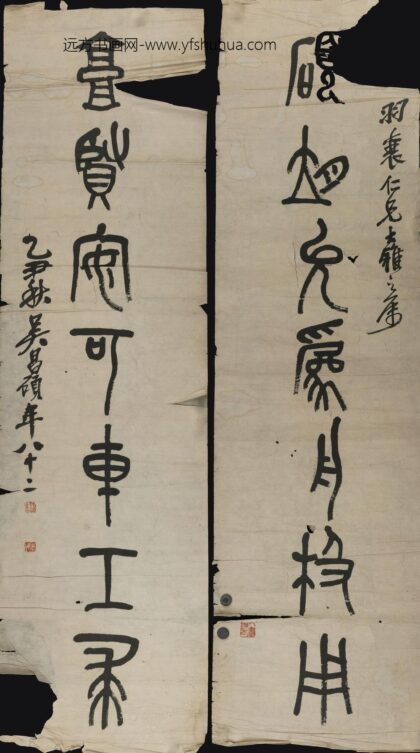 远方书画网-www.yfshuhua.com
羽襄仁兄大雅之屬
允為舟用
賢安可車工
乙丑秋吳昌碩年八十二